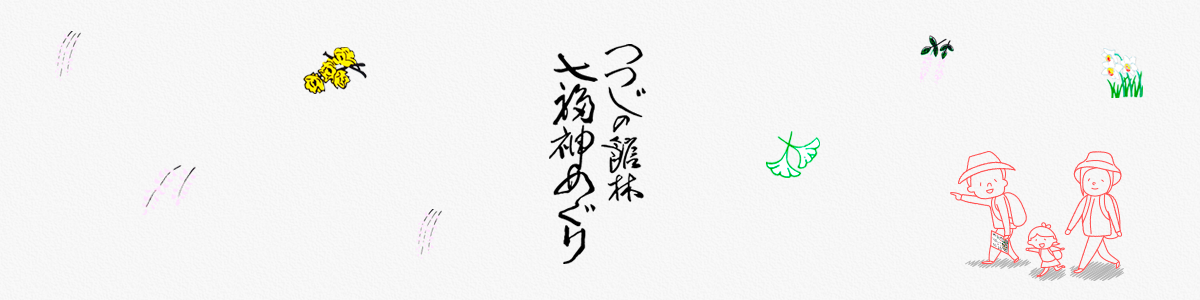 つつじの館林
七福神めぐり